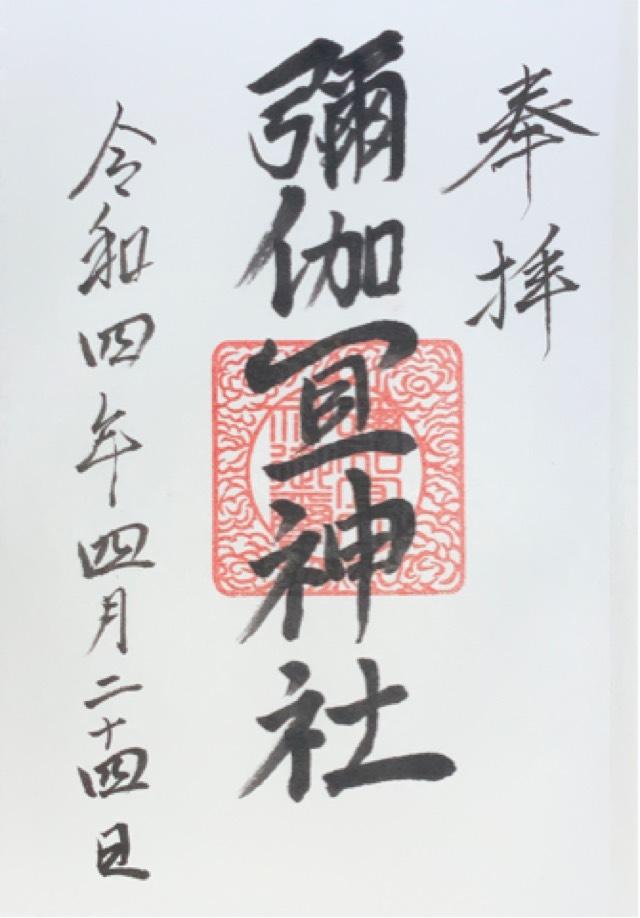 奉拝
彌伽宜神社
令和四年四月二十四日